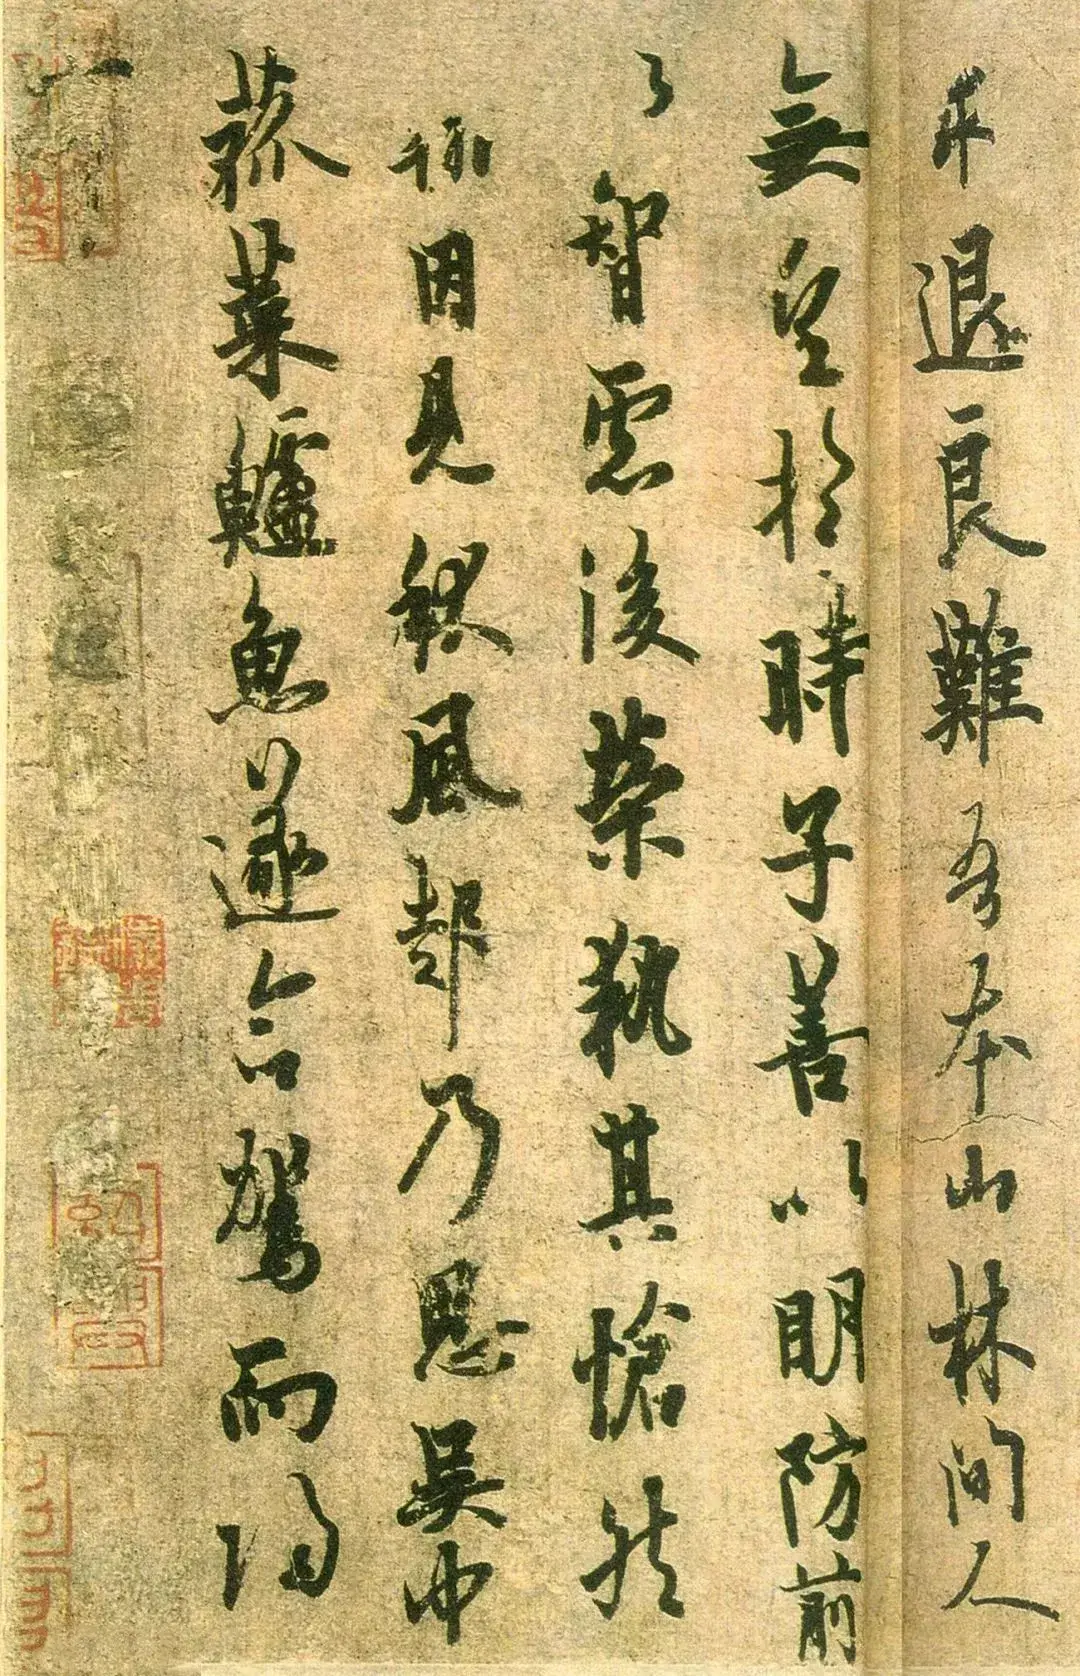 求退良難吾本山林間人
無望於時子善以明防前
以智慮後榮執其愴然
翰因見秋風起乃思吳中
菰菜鱸魚遂命駕而歸